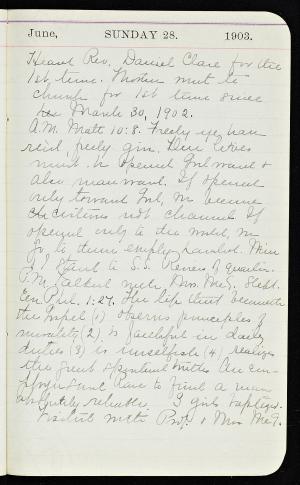 June, SUNDAY 28. 1903.
Heard Rev. Daniel Clare for the
1st time. Mother went to
church for 1st time since
March 30, 1902.
A.M. Matt 10:8. Freely ye have
rec'd, freely give. Our lives
must be opened Godward &
also manward. If opened
only toward God, we become
cisterns not channels. If
opened only to the world, we
to
I to S.S. Review of quarter.
P.M. talked with Mrs. McG.
Eve Phil. 1:27. The life that becometh
the Gospel (1) observes principles of
morality (2) is faithful in daily
duties (3) is unselfish (4) realizes
the great spiritual truths
rare to find a man
absolutely reliable. 3 girls baptized.
Visited with Prof. & Mrs McG.